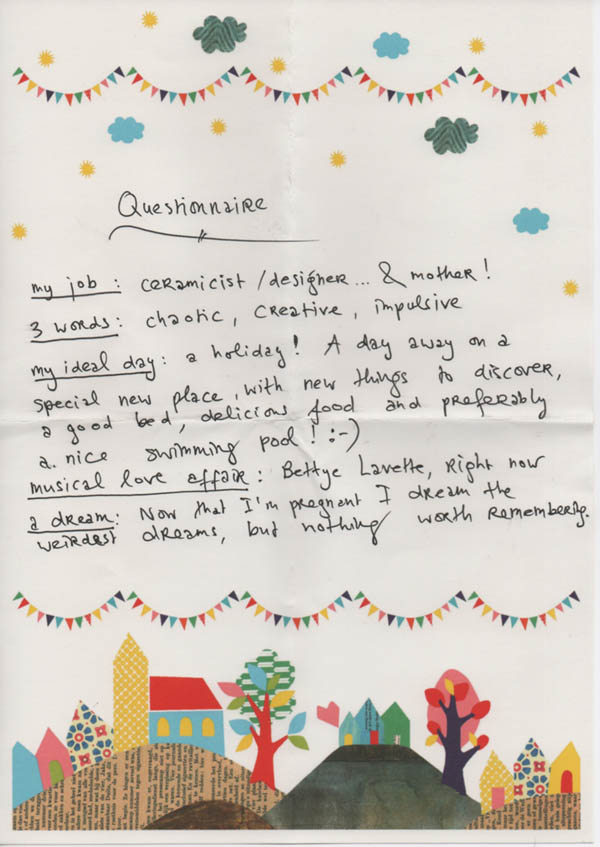 Questionnaire
my job: ceramicist/designer... & mother!
3 words: chaotic, creative, impulsive
my ideal day: a holiday! A day away on a
special new place, with new things to discover,
a good bed, delicious food and preferably
a nice swimming pool! :-)
musical love affair: Bettye Lavette, right now
a dream: Now that I'm pregnant I dream the
weirdest dreams, but nothing worth remembering.